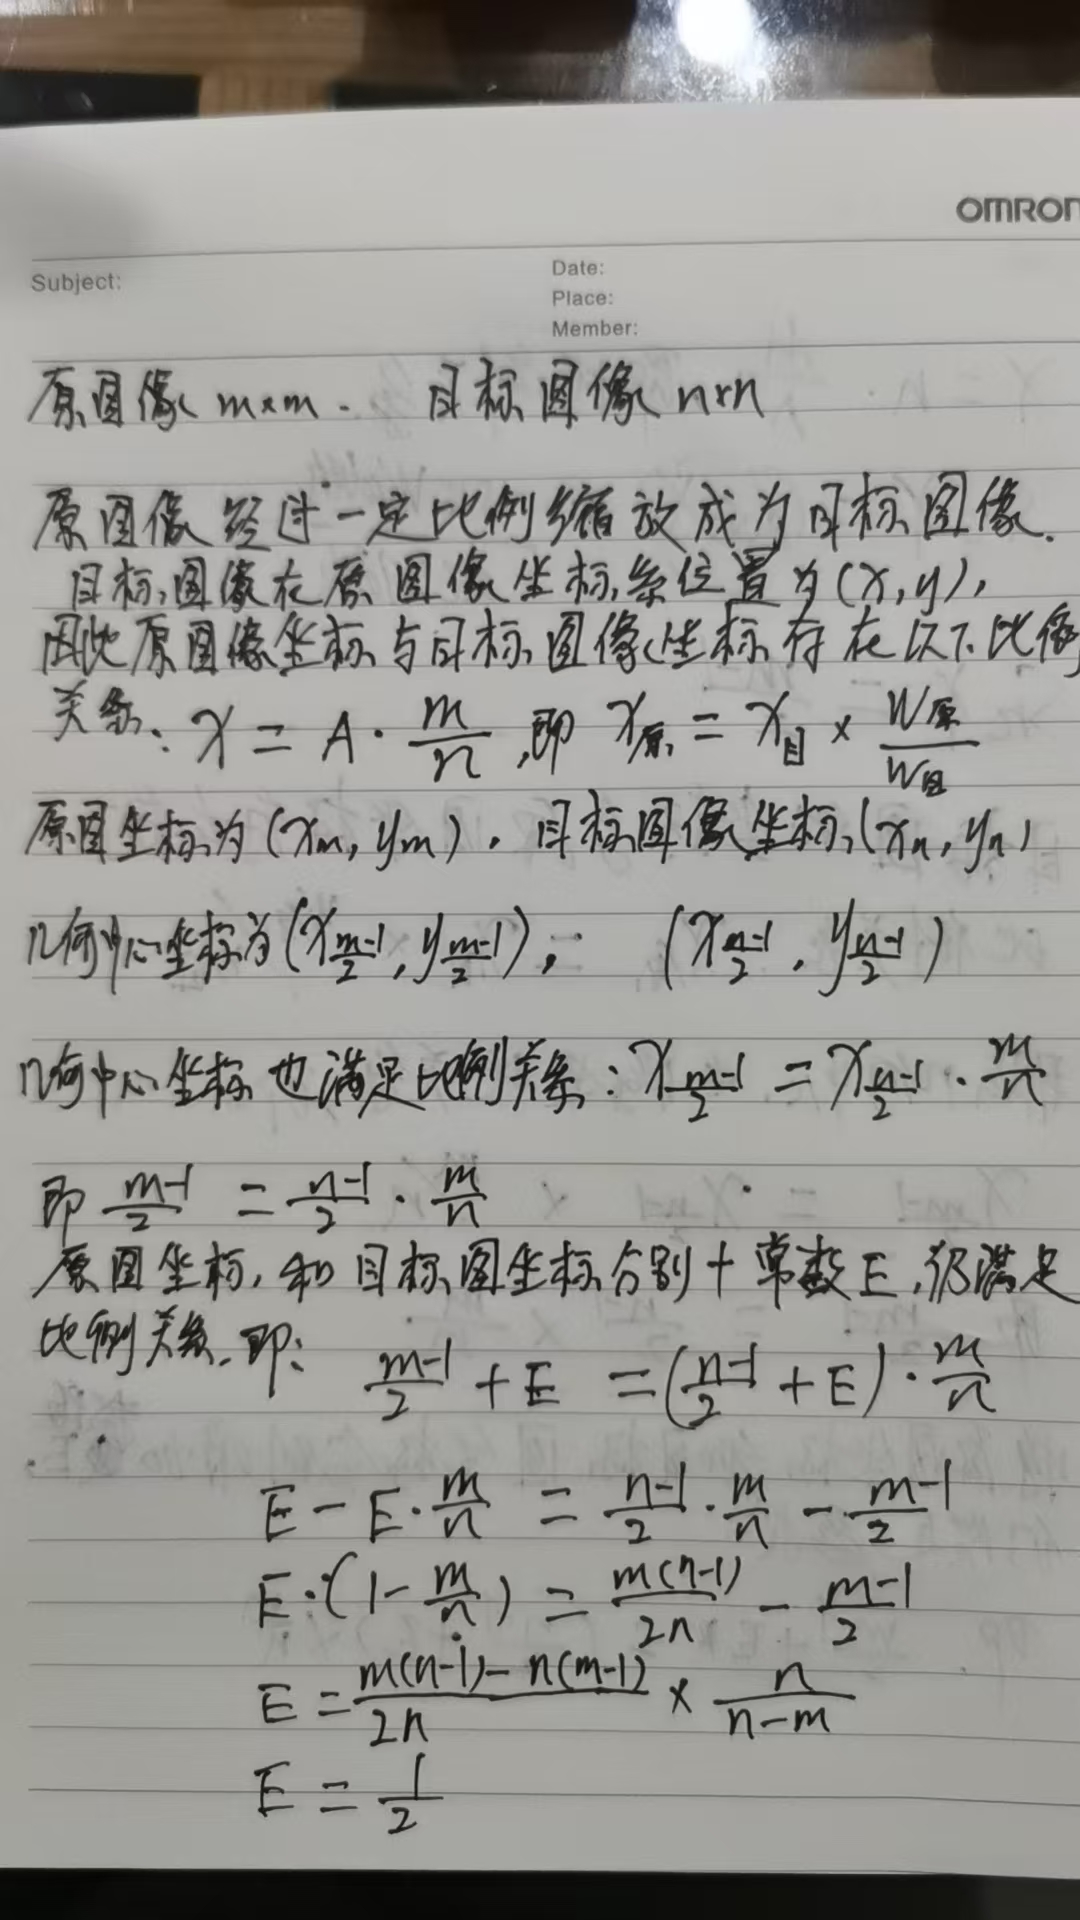 OMRON
Subject:
Date:
Place:
Member:
原图像 m×m. 目标图像 n×n
原图像经过一定比例缩放成为目标图像.
目标图像在原图像坐标系位置为(x,y),
因此原图像坐标与目标图像坐标存在以下比例
关系: x = A · m/n ,即 x原 = x目 × W原/W目
原图坐标为 (xm, ym), 目标图像坐标(xn, yn)
几何中心坐标为 (x(m-1)/2, y(m-1)/2), (x(n-1)/2, y(n-1)/2)
几何中心坐标也满足比例关系: x(m-1)/2 = x(n-1)/2 · m/n
即 (m-1)/2 = (n-1)/2 · m/n
原图坐标,和目标图坐标分别+常数E,仍满足
比例关系.即: (m-1)/2 + E = ((n-1)/2 + E) · m/n
E - E · m/n = (n-1)/2 · m/n - (m-1)/2
E · (1 - m/n) = m(n-1)/2n - (m-1)/2
E = (m(n-1) - n(m-1))/2n × n/(n-m)
E = 1/2